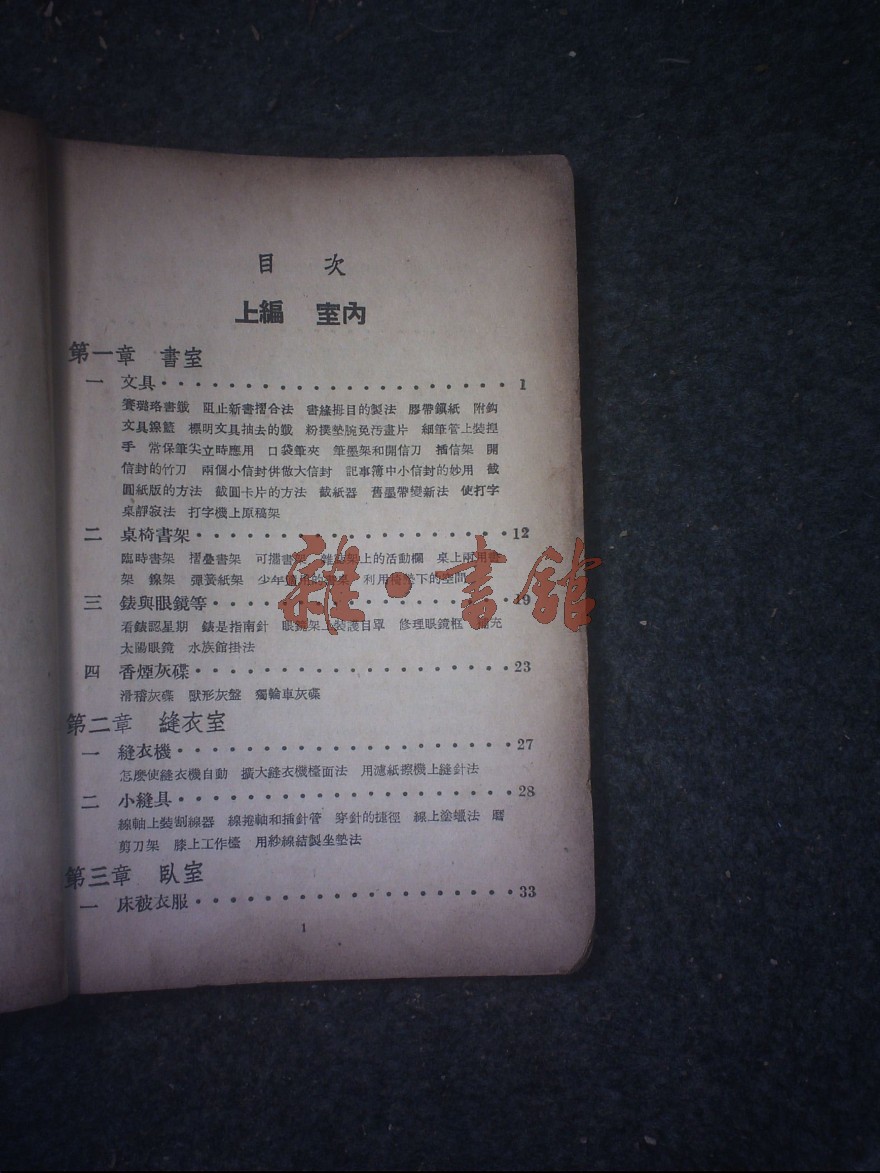 目 次
上編 室內
第一章 書室
一 文具····················1
賽璐珞書籤 阻止新書摺合法 書緣拇目的製法 膠帶鎭紙 附鈎
文具鎳籃 標明文具抽去的籤 粉撲墊腕免汚畫片 細筆管上裝揑
手 常保筆尖立時應用 口袋筆夾 筆墨架和開信刀 插信架 開
信封的竹刀 兩個小信封併做大信封 記事簿中小信封的妙用 截
圓紙版的方法 截圓卡片的方法 截紙器 舊墨帶變新法 使打字
桌靜寂法 打字機上原稿架
二 桌椅書架··················12
臨時書架 摺疊書架 可攜書架 雜誌架上的活動欄 桌上兩用書
架 鎳架 彈簧紙架 少年適用的書桌 利用椅墊下的空間
三 錶與眼鏡等·················19
看錶認星期 錶是指南針 眼鏡架上裝護目罩 修理眼鏡框 充
太陽眼鏡 水族館掛法
四 香煙灰碟··················23
滑稽灰碟 獸形灰盤 獨輪車灰碟
第二章 縫衣室
一 縫衣機···················27
怎麽使縫衣機自動 擴大縫衣機檯面法 用濾紙擦機上縫針法
二 小縫具···················28
線軸上裝割線器 線捲軸和插針管 穿針的捷徑 線上塗蠟法 磨
剪刀架 膝上工作檯 用紗線結製坐墊法
第三章 臥室
一 床被衣服··················33
1
雜·書館